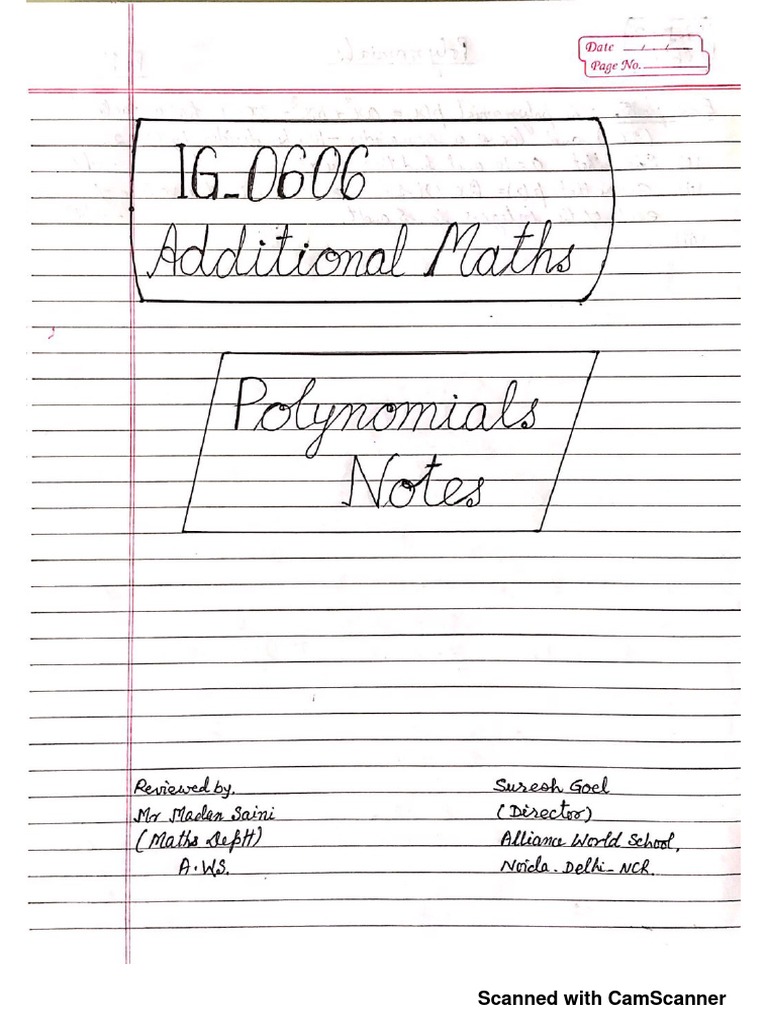 Date
Page No.
IG-0606
Additional Maths
Polynomials
Notes
Reviewed by,
Mr Madan Saini
(Maths Deptt)
A.W.S.
Suresh Goel
(Director)
Alliance World School,
Noida-Delhi-NCR.
Scanned with CamScanner